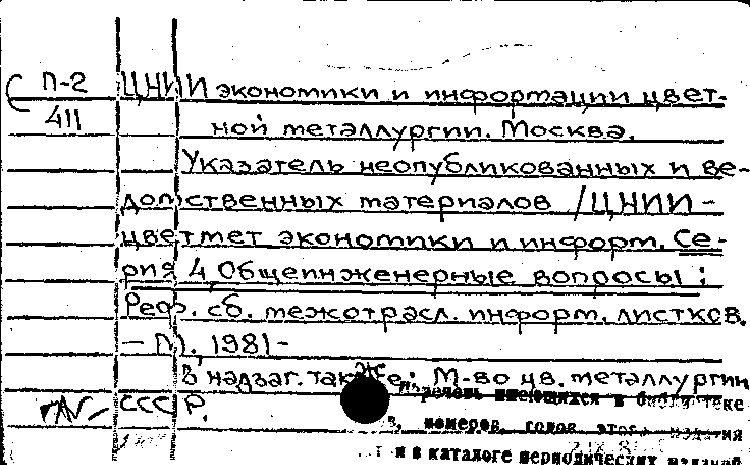 П-2 ЦНИИ экономики и информации цвет-
411 ной металлургии. Москва.
Указатель неопубликованных и ве-
домственных материалов /ЦНИИ-
цветмет экономики и информ. Се-
рия 4, Общеинженерные вопросы :
Реф. сб. межотрасл. информ. листков.
— М., 1981-
В надзаг. также: М-во цв. металлургии
СССР.
перечень имеющихся в библиотеке
номеров, годов этого издания
и в каталоге периодических изданий